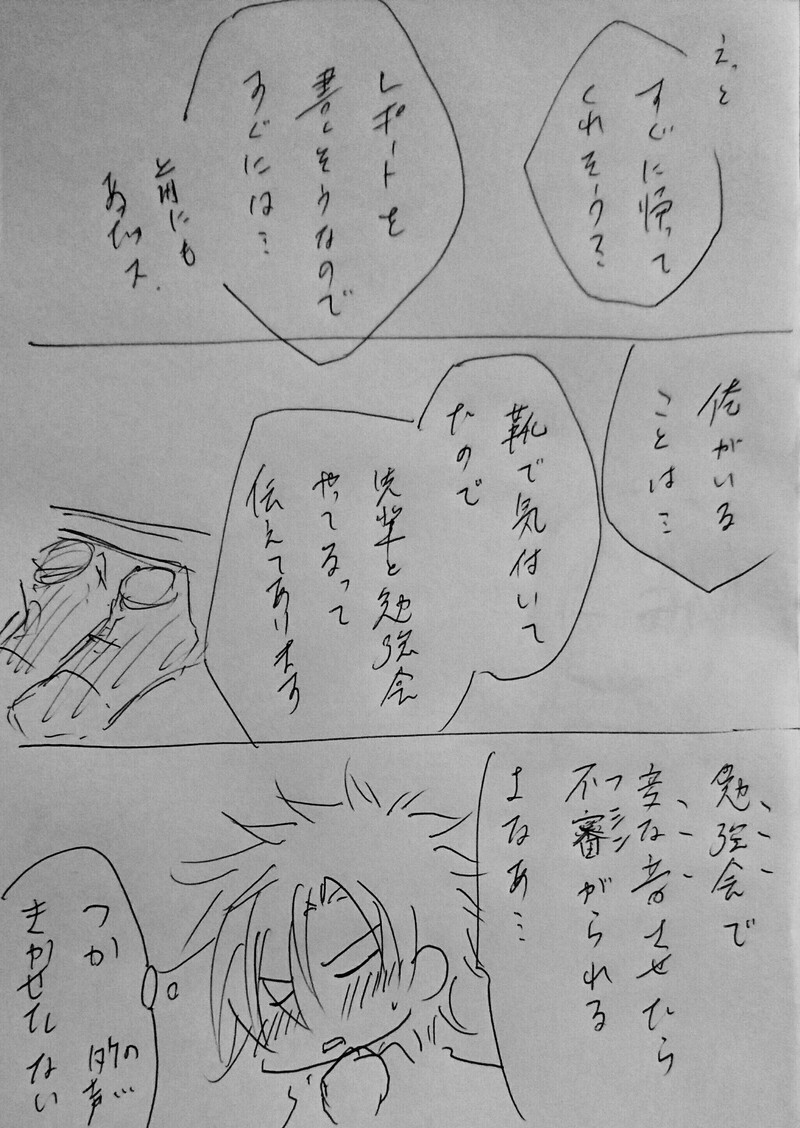 えっと
すぐに帰って
くれそう?
レポートを
書くそうなので
すぐには…
前にも
あったス.
俺がいる
ことは…
靴で気付いて
たので
先輩と勉強会
やってるって
伝えてあります
勉強会で
変な音させたら
不審がられる
フシン
よなあ…
つか
の声
きかせたくない